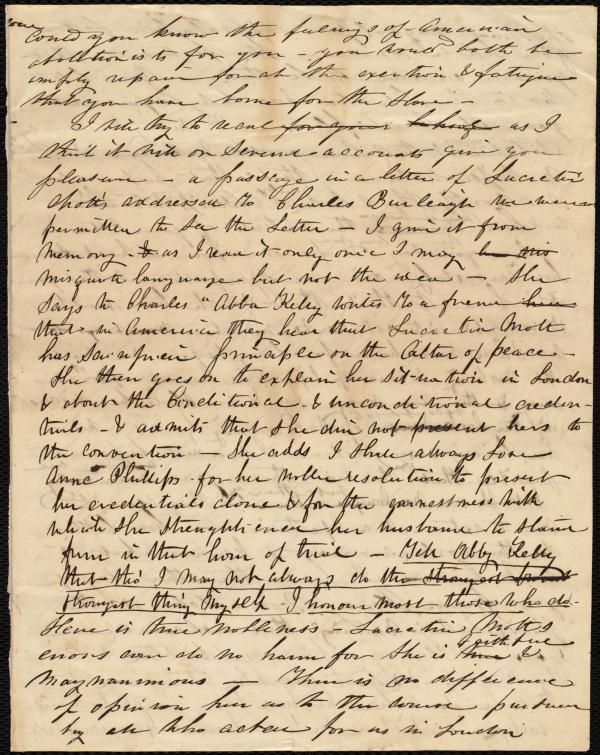 could you know the feelings of American
abolitionists for you - you would both be
amply repaid for all the exertion & fatigue
that you have borne for the slave -
I will try to recal for your behoof as I
think it will on several accounts give you
pleasure - a passage in a letter of Lucretia
Mott's addressed to Charles Burleigh we were
permitted to see the Letter - I give it from
memory - & as I read it only once I may be
misquote language but not the idea - She
says to Charles "Abba Kelly writes to a friend here
that in America they hear that Lucretia Mott
has sacrificed principle on the Altar of peace -
She then goes on to explain her situation in London
& about the Conditional & unconditional creden-
tials - & admits that she did not present hers to
the convention - She adds I shall always love
Anne Phillips for her noble resolution to present
her credentials alone & for the earnestness with
which she strengthened her husband to stand
firm in that hour of trial - Tell Abby Kelly
that tho' I may not always do the strongest
strongest thing myself - I honour most those who do -
Here is true nobleness - Lucretia Mott's
errors can do no harm for she is true faithful &
Magnanimous - There is no difference
of opinion here as to the course pursued
by all who acted for us in London